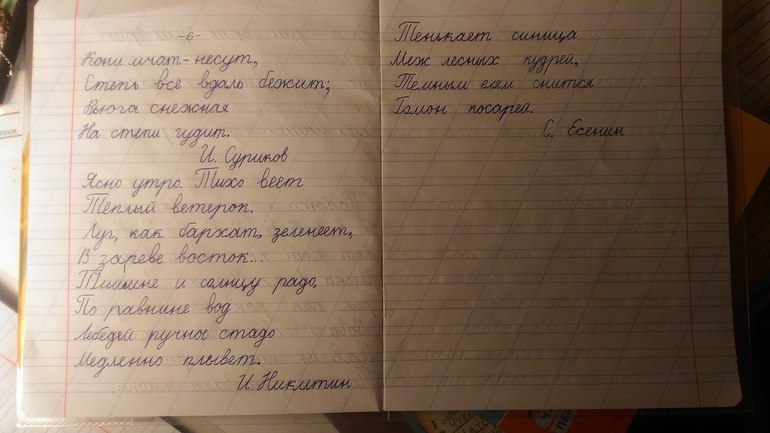 -6-
Кони мчат-несут,
Степь всё вдаль бежит;
Вьюга снежная
На степи гудит.
И. Суриков
Ясно утро. Тихо веет
Тёплый ветерок.
Луг, как бархат, зеленеет,
В зареве восток...
Тишине и солнцу радо,
По равнине вод
Лебедей ручное стадо
Медленно плывет.
И. Никитин
Тенькает синица
Меж лесных кудрей,
Темным елям снится
Гомон косарей.
С. Есенин